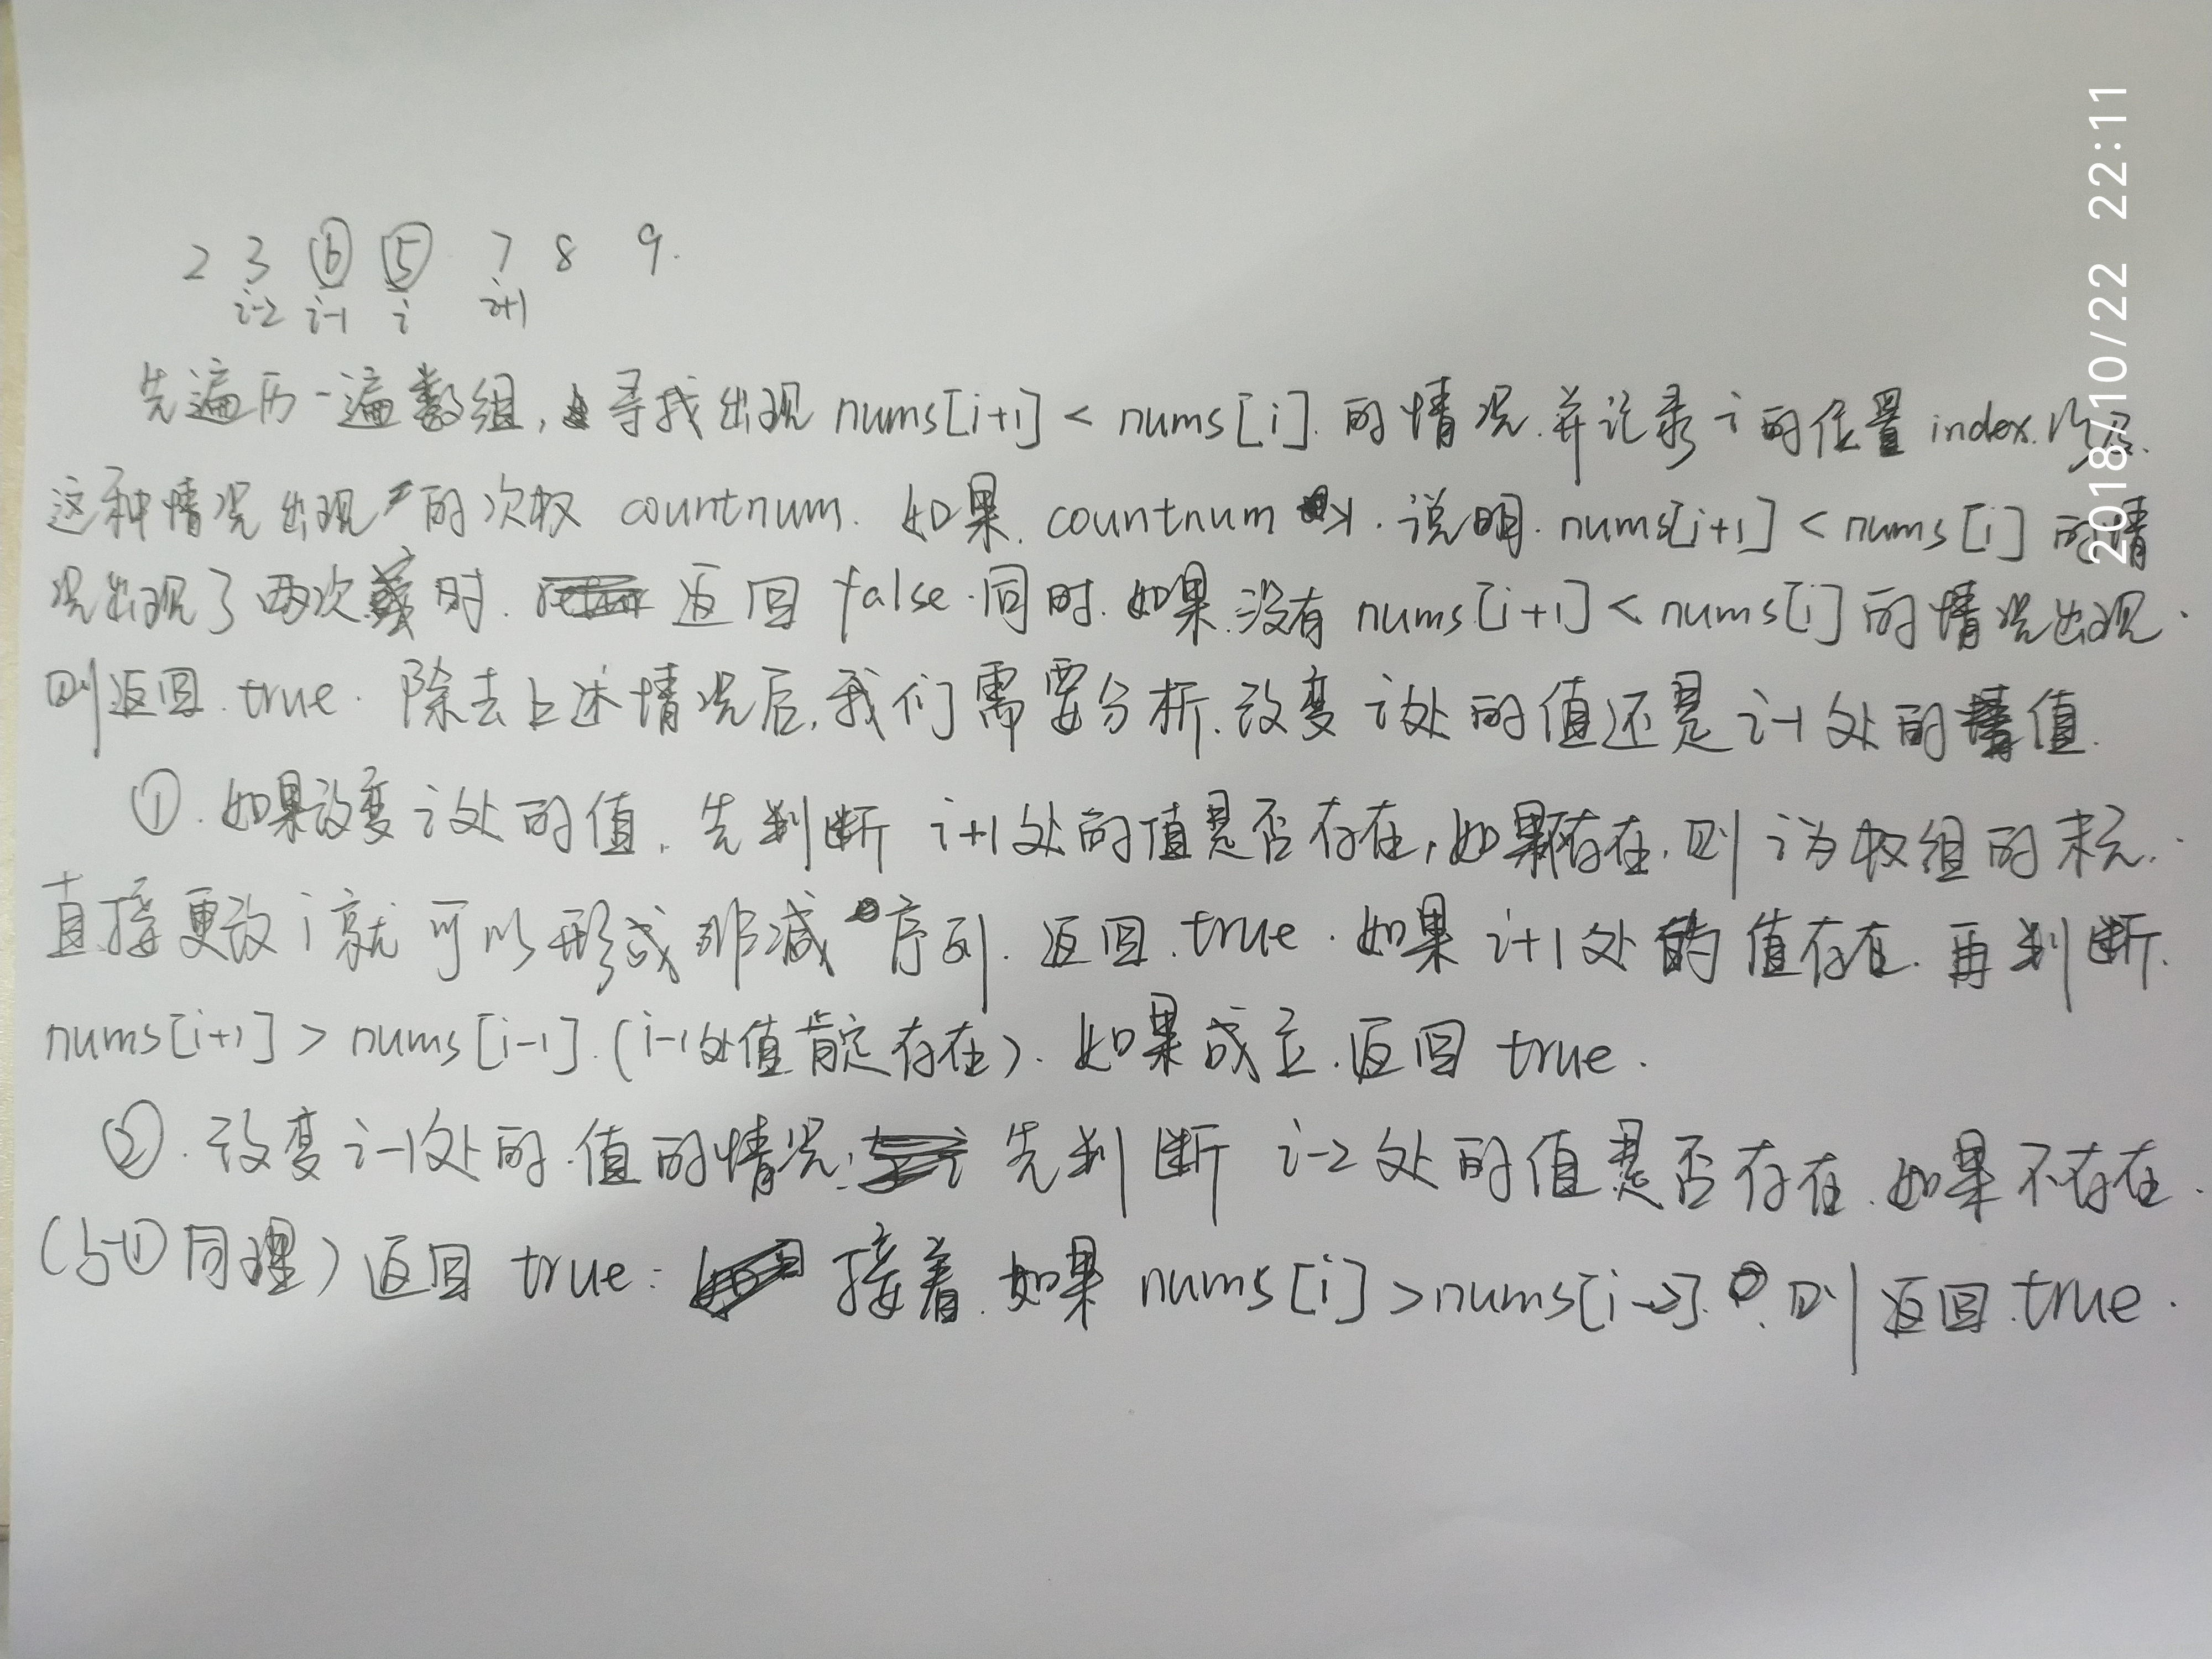 2 3 ⑥ ⑤ 7 8 9.
i-2 i-1 i i+1
先遍历一遍数组,寻找出现 nums[i+1] < nums[i]. 的情况.并记录 i 的位置 index.以及.
这种情况出现的次数 countnum. 如果. countnum >1. 说明. nums[i+1] < nums[i] 的情
况出现了两次时. 返回 false.同时.如果.没有 nums[i+1] < nums[i] 的情况出现.
则返回. true. 除去上述情况后,我们需要分析.改变 i处的值还是 i-1 处的值.
①.如果改变 i处的值. 先判断 i+1处的值是否存在,如果不存在.则 i为数组的末元.
直接更改 i 就可以形成非减序列. 返回. true. 如果 i+1 处的值存在. 再判断.
nums[i+1] > nums[i-1].(i-1处值肯定存在). 如果成立.返回 true.
②.改变 i-1处的.值的情况. 先判断 i-2 处的值是否存在.如果不存在.
(与①同理)返回 true: 接着.如果 nums[i] >nums[i-2]. 则返回.true.
2018/10/22 22:11